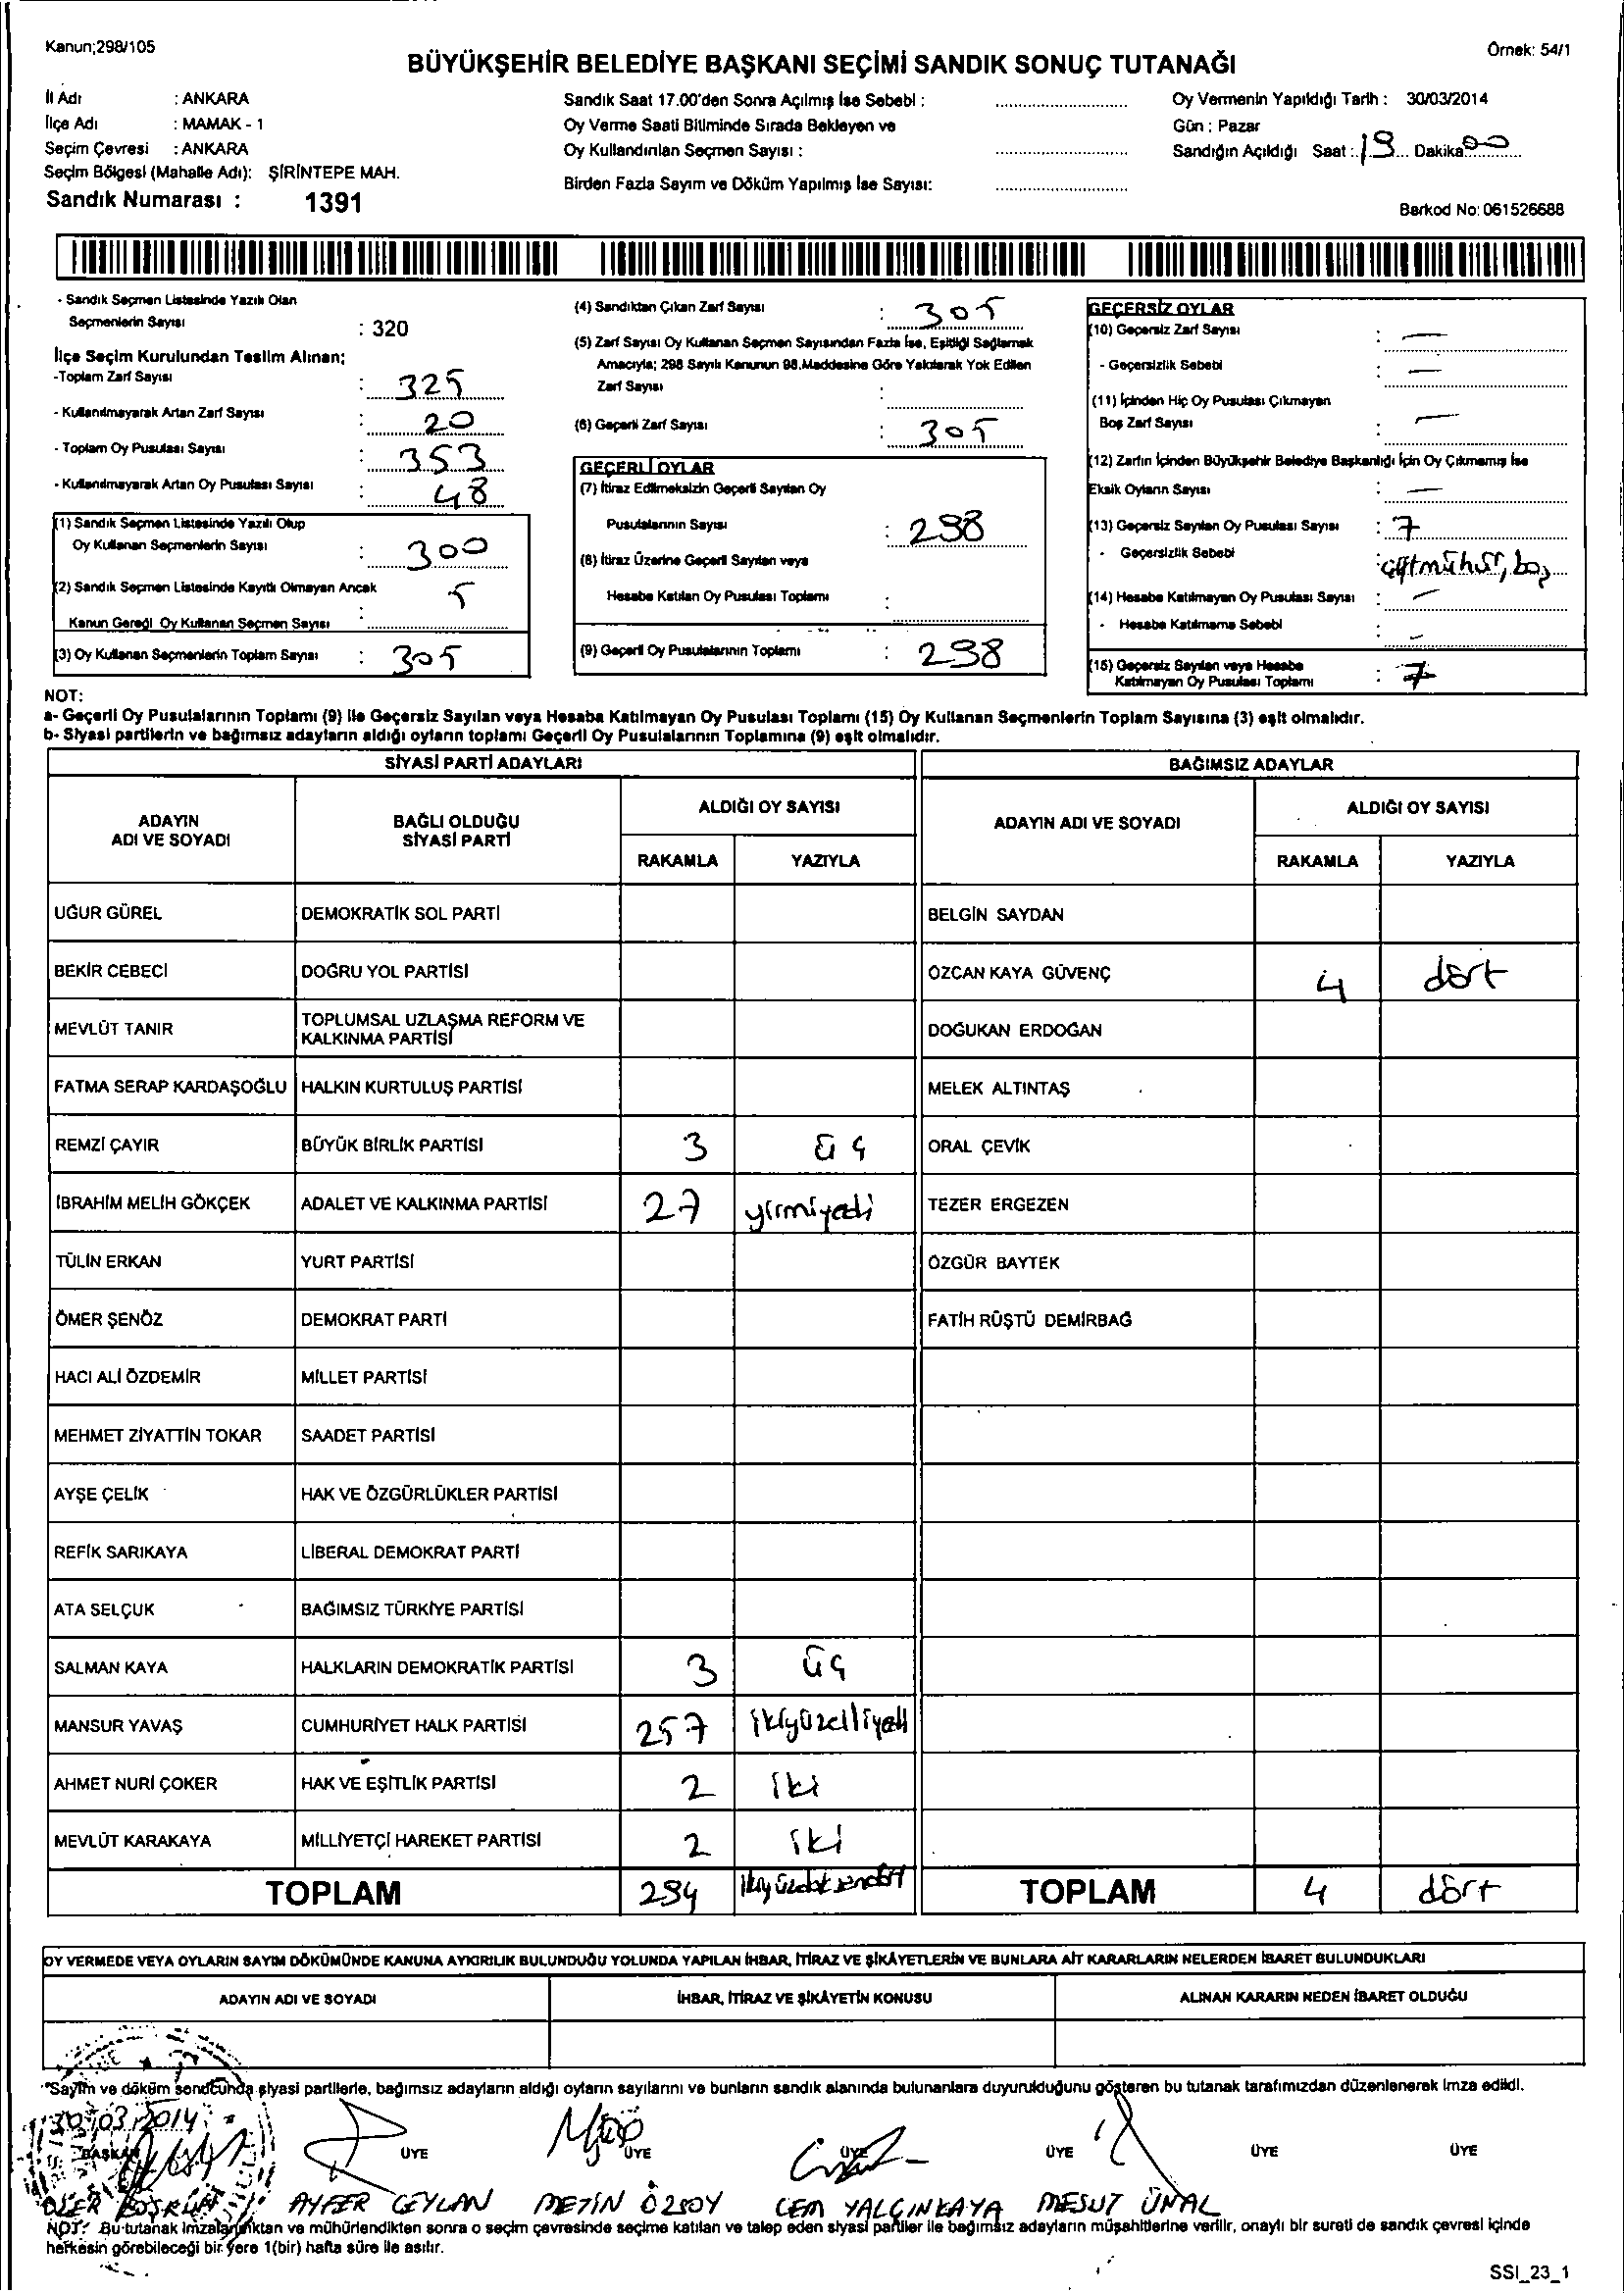 Kanun;298/105
Örnek: 54/1
BÜYÜKŞEHİR BELEDİYE BAŞKANI SEÇİMİ SANDIK SONUÇ TUTANAĞI
İl Adı : ANKARA
İlçe Adı : MAMAK - 1
Seçim Çevresi : ANKARA
Seçim Bölgesi (Mahalle Adı): ŞİRİNTEPE MAH.
Sandık Numarası : 1391
Sandık Saat 17.00'den Sonra Açılmış İse Sebebi :
Oy Verme Saati Bitiminde Sırada Bekleyen ve
Oy Kullandırılan Seçmen Sayısı :
Birden Fazla Sayım ve Döküm Yapılmış İse Sayısı:
Oy Vermenin Yapıldığı Tarih : 30/03/2014
Gün : Pazar
Sandığın Açıldığı Saat : 19 Dakika 00
Barkod No: 061526688
- Sandık Seçmen Listesinde Yazılı Olan
Seçmenlerin Sayısı : 320
İlçe Seçim Kurulundan Teslim Alınan;
-Toplam Zarf Sayısı : 325
- Kullanılmayarak Artan Zarf Sayısı : 20
- Toplam Oy Pusulası Sayısı : 353
- Kullanılmayarak Artan Oy Pusulası Sayısı : 48
(1) Sandık Seçmen Listesinde Yazılı Olup
Oy Kullanan Seçmenlerin Sayısı : 300
(2) Sandık Seçmen Listesinde Kayıtlı Olmayan Ancak
Kanun Gereği Oy Kullanan Seçmen Sayısı : 5
(3) Oy Kullanan Seçmenlerin Toplam Sayısı : 305
(4) Sandıktan Çıkan Zarf Sayısı : 305
(5) Zarf Sayısı Oy Kullanan Seçmen Sayısından Fazla İse, Eşitliği Sağlamak
Amacıyla; 298 Sayılı Kanunun 98.Maddesine Göre Yakılarak Yok Edilen
Zarf Sayısı :
(6) Geçerli Zarf Sayısı : 305
GEÇERLİ OYLAR
(7) İtiraz Edilmeksizin Geçerli Sayılan Oy
Pusulalarının Sayısı : 298
(8) İtiraz Üzerine Geçerli Sayılan veya
Hesaba Katılan Oy Pusulası Toplamı :
(9) Geçerli Oy Pusulalarının Toplamı : 298
GEÇERSİZ OYLAR
(10) Geçersiz Zarf Sayısı : —
- Geçersizlik Sebebi : —
(11) İçinden Hiç Oy Pusulası Çıkmayan
Boş Zarf Sayısı : —
(12) Zarfın İçinden Büyükşehir Belediye Başkanlığı İçin Oy Çıkmamış İse
Eksik Oyların Sayısı : —
(13) Geçersiz Sayılan Oy Pusulası Sayısı : 7
- Geçersizlik Sebebi : çift mühür, boş
(14) Hesaba Katılmayan Oy Pusulası Sayısı : —
- Hesaba Katılmama Sebebi : —
(15) Geçersiz Sayılan veya Hesaba
Katılmayan Oy Pusulası Toplamı : 7
NOT:
a- Geçerli Oy Pusulalarının Toplamı (9) ile Geçersiz Sayılan veya Hesaba Katılmayan Oy Pusulası Toplamı (15) Oy Kullanan Seçmenlerin Toplam Sayısına (3) eşit olmalıdır.
b- Siyasi partilerin ve bağımsız adayların aldığı oyların toplamı Geçerli Oy Pusulalarının Toplamına (9) eşit olmalıdır.
SİYASİ PARTİ ADAYLARI BAĞIMSIZ ADAYLAR
ADAYIN ADI VE SOYADI BAĞLI OLDUĞU SİYASİ PARTİ ALDIĞI OY SAYISI ADAYIN ADI VE SOYADI ALDIĞI OY SAYISI
RAKAMLA YAZIYLA RAKAMLA YAZIYLA
UĞUR GÜREL DEMOKRATİK SOL PARTİ BELGİN SAYDAN
BEKİR CEBECİ DOĞRU YOL PARTİSİ ÖZCAN KAYA GÜVENÇ 4 dört
MEVLÜT TANIR TOPLUMSAL UZLAŞMA REFORM VE KALKINMA PARTİSİ DOĞUKAN ERDOĞAN
FATMA SERAP KARDAŞOĞLU HALKIN KURTULUŞ PARTİSİ MELEK ALTINTAŞ
REMZİ ÇAYIR BÜYÜK BİRLİK PARTİSİ 3 üç ORAL ÇEVİK
İBRAHİM MELİH GÖKÇEK ADALET VE KALKINMA PARTİSİ 27 yirmiyedi TEZER ERGEZEN
TÜLİN ERKAN YURT PARTİSİ ÖZGÜR BAYTEK
ÖMER ŞENÖZ DEMOKRAT PARTİ FATİH RÜŞTÜ DEMİRBAĞ
HACI ALİ ÖZDEMİR MİLLET PARTİSİ
MEHMET ZİYATTİN TOKAR SAADET PARTİSİ
AYŞE ÇELİK HAK VE ÖZGÜRLÜKLER PARTİSİ
REFİK SARIKAYA LİBERAL DEMOKRAT PARTİ
ATA SELÇUK BAĞIMSIZ TÜRKİYE PARTİSİ
SALMAN KAYA HALKLARIN DEMOKRATİK PARTİSİ 3 üç
MANSUR YAVAŞ CUMHURİYET HALK PARTİSİ 257 ikiyüzelliyedi
AHMET NURİ ÇOKER HAK VE EŞİTLİK PARTİSİ 2 iki
MEVLÜT KARAKAYA MİLLİYETÇİ HAREKET PARTİSİ 2 iki
TOPLAM 294 ikiyüzdoksandört TOPLAM 4 dört
OY VERMEDE VEYA OYLARIN SAYIM DÖKÜMÜNDE KANUNA AYKIRILIK BULUNDUĞU YOLUNDA YAPILAN İHBAR, İTİRAZ VE ŞİKÂYETLERİN VE BUNLARA AİT KARARLARIN NELERDEN İBARET BULUNDUKLARI
ADAYIN ADI VE SOYADI İHBAR, İTİRAZ VE ŞİKÂYETİN KONUSU ALINAN KARARIN NEDEN İBARET OLDUĞU
"Sayım ve döküm sonucunda siyasi partilerle, bağımsız adayların aldığı oyların sayılarını ve bunların sandık alanında bulunanlara duyurulduğunu gösteren bu tutanak tarafımızdan düzenlenerek imza edildi.
30/03/2014
BAŞKAN ÜYE ÜYE ÜYE ÜYE ÜYE ÜYE
AYFER CEYLAN METİN ÖZSOY CEM YALÇINKAYA MESUT ÜNAL
NOT: Bu tutanak imzalandıktan ve mühürlendikten sonra o seçim çevresinde seçime katılan ve talep eden siyasi partiler ile bağımsız adayların müşahitlerine verilir, onaylı bir sureti de sandık çevresi içinde
herkesin görebileceği bir yere 1(bir) hafta süre ile asılır.
SSI_23_1